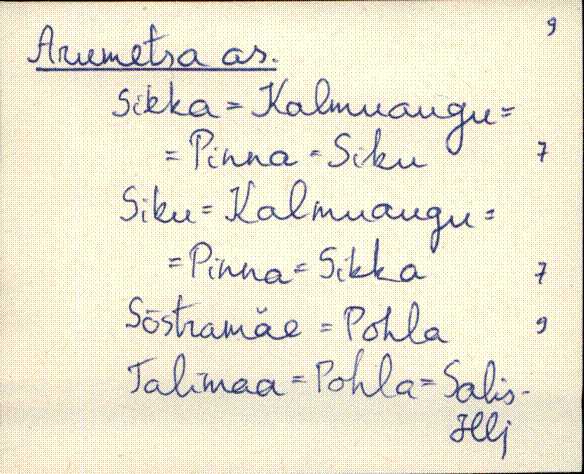 9
Arumetsa as.
Sikka = Kalmuaugu =
= Pinna = Siku 7
Siku = Kalmuaugu =
= Pinna = Sikka 7
Sõstramäe = Pohla 9
Talimaa = Pohla = Salis-